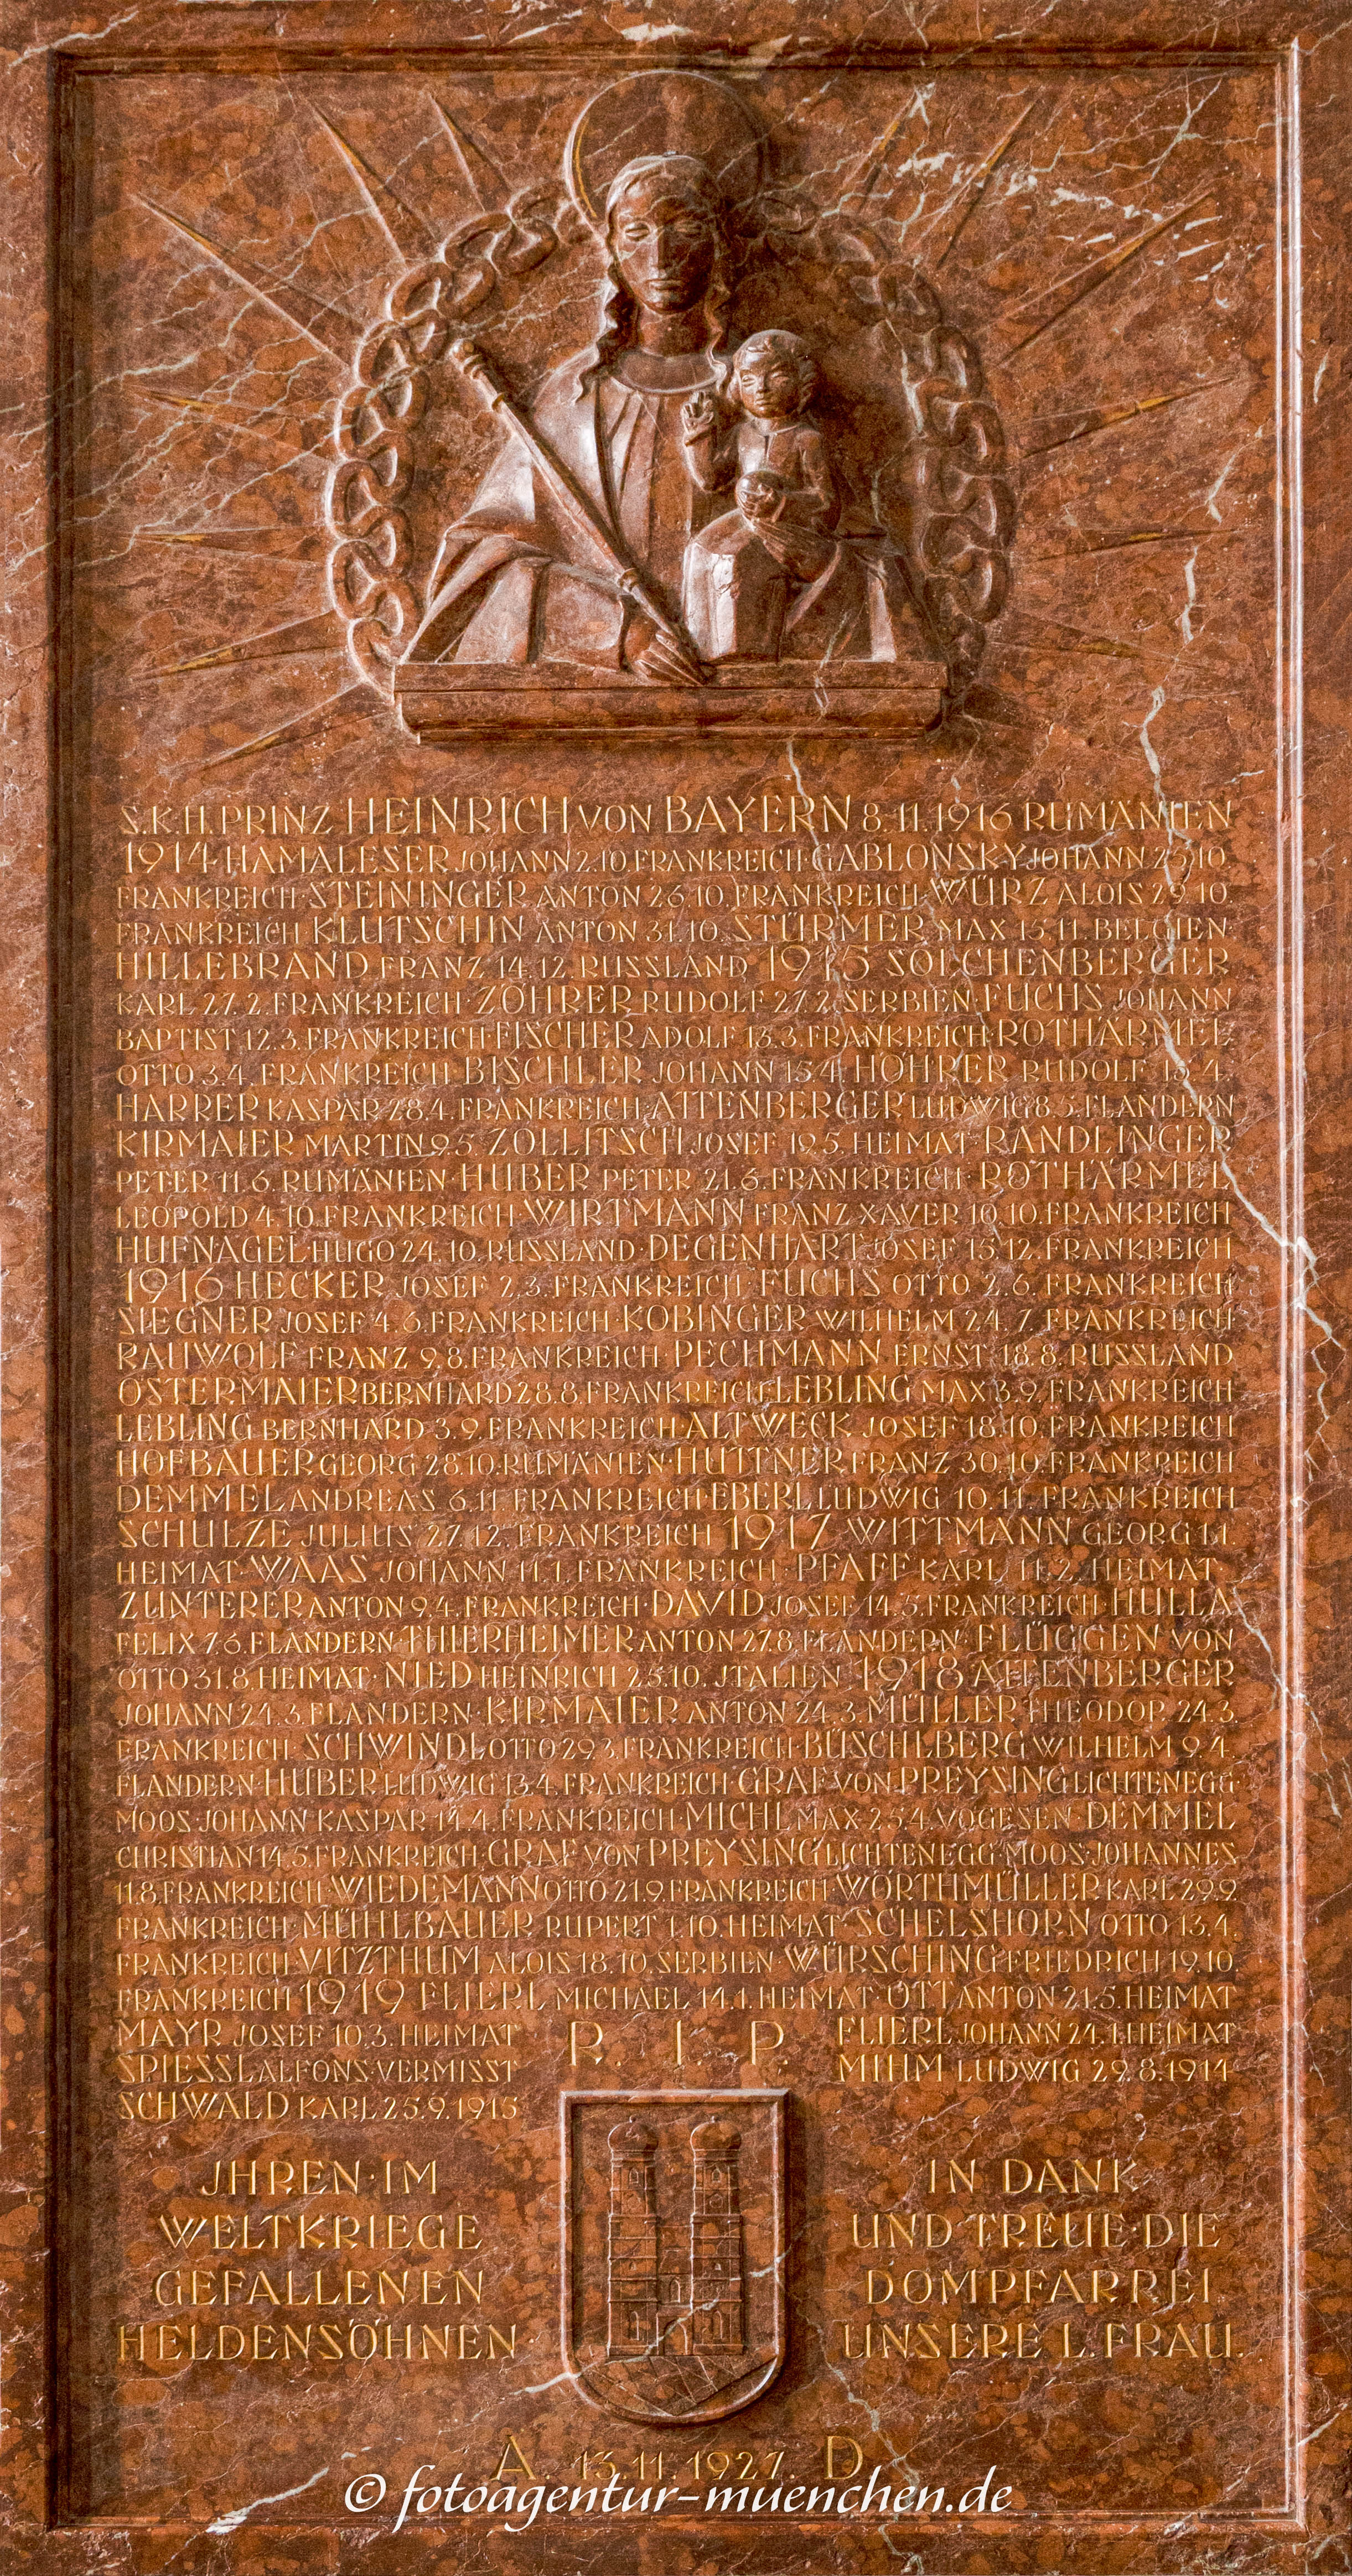 S.K.H. PRINZ HEINRICH VON BAYERN 8.11.1916 RUMÄNIEN
1914·HAMALESER JOHANN 2.10. FRANKREICH·GABLONSKY JOHANN 25.10.
FRANKREICH·STEININGER ANTON 26.10. FRANKREICH·WÜRZ ALOIS 29.10.
FRANKREICH·KLUTSCHIN ANTON 31.10. STÜRMER MAX 15.11. BELGIEN·
HILLEBRAND FRANZ 14.12. RUSSLAND 1915 SOLCHENBERGER
KARL 27.2. FRANKREICH·ZÖHRER RUDOLF 27.2. SERBIEN·FUCHS JOHANN
BAPTIST 12.3. FRANKREICH·FISCHER ADOLF 13.3. FRANKREICH·ROTHÄRMEL
OTTO 3.4. FRANKREICH·BISCHLER JOHANN 15.4. HÖHRER RUDOLF 15.4.
HARRER KASPAR 28.4. FRANKREICH·ATTENBERGER LUDWIG 8.5. FLANDERN
KIRMAIER MARTIN 9.5. ZOLLITSCH JOSEF 19.5. HEIMAT·RANDLINGER
PETER 11.6. RUMÄNIEN·HUBER PETER 21.6. FRANKREICH·ROTHÄRMEL
LEOPOLD 4.10. FRANKREICH·WIRTMANN FRANZ XAVER 10.10. FRANKREICH
HUFNAGEL HUGO 24.10. RUSSLAND·DEGENHART JOSEF 15.12. FRANKREICH
1916 HECKER JOSEF 2.3. FRANKREICH·FUCHS OTTO 2.6. FRANKREICH
SIEGNER JOSEF 4.6. FRANKREICH·KOBINGER WILHELM 24.7. FRANKREICH·
RAUWOLF FRANZ 9.8. FRANKREICH·PECHMANN ERNST 18.8. RUSSLAND
OSTERMAIER BERNHARD 28.8. FRANKREICH·LEBLING MAX 3.9. FRANKREICH
LEBLING BERNHARD 3.9. FRANKREICH·ALTWECK JOSEF 18.10. FRANKREICH
HOFBAUER GEORG 28.10. RUMÄNIEN·HUTTNER FRANZ 30.10. FRANKREICH
DEMMEL ANDREAS 6.11. FRANKREICH·EBERL LUDWIG 10.11. FRANKREICH
SCHULZE JULIUS 27.12. FRANKREICH 1917 WITTMANN GEORG 1.1.
HEIMAT·WAAS JOHANN 11.1. FRANKREICH·PFAFF KARL 11.2. HEIMAT·
ZUNTERER ANTON 9.4. FRANKREICH·DAVID JOSEF 14.5. FRANKREICH·HULLA
FELIX 7.6. FLANDERN·THIERHEIMER ANTON 27.8. FLANDERN·FLÜGGEN VON
OTTO 31.8. HEIMAT·NIED HEINRICH 25.10. JTALIEN 1918 ATTENBERGER
JOHANN 24.3. FLANDERN·KIRMAIER ANTON 24.3. MÜLLER THEODOR 24.3.
FRANKREICH·SCHWINDL OTTO 29.3. FRANKREICH·BÜSCHLBERG WILHELM 9.4.
FLANDERN·HUBER LUDWIG 13.4. FRANKREICH·GRAF VON PREYSING LICHTENEGG·
MOOS JOHANN KASPAR 14.4. FRANKREICH·MICHL MAX 25.4. VOGESEN·DEMMEL
CHRISTIAN 14.5. FRANKREICH·GRAF VON PREYSING LICHTENEGG·MOOS·JOHANNES
11.8. FRANKREICH·WIEDEMANN OTTO 21.9. FRANKREICH·WÖRTHMÜLLER KARL 29.9.
FRANKREICH·MÜHLBAUER RUPERT 1.10. HEIMAT·SCHELSHORN OTTO 13.4.
FRANKREICH·VITZTHUM ALOIS 18.10. SERBIEN·WÜRSCHING FRIEDRICH 19.10.
FRANKREICH 1919 FLIERL MICHAEL 14.1. HEIMAT·OTT ANTON 21.5. HEIMAT
MAYR JOSEF 10.3. HEIMAT R. I. P. FLIERL JOHANN 24.1. HEIMAT
SPIESSL ALFONS·VERMISST MIHM LUDWIG 29.8.1914
SCHWALD KARL 25.9.1915
JHREN·IM
WELTKRIEGE
GEFALLENEN
HELDENSÖHNEN
IN DANK
UND TREUE·DIE
DOMPFARREI
UNSERE L. FRAU.
A. 13.11.1927. D.
© fotoagentur-muenchen.de